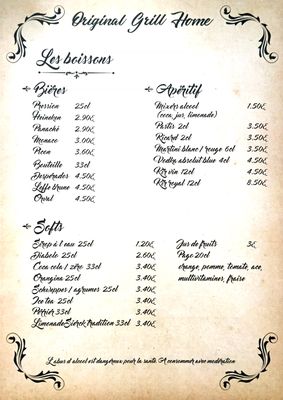 Original Grill Home
Les boissons
Bières
Pression 25cl
Heineken 2.90€
Panaché 2.90€
Monaco 3.00€
Picon 3.60€
Bouteille 33cl
Desperados 4.50€
Leffe brune 4.50€
Orval 4.50€
Apéritif
Mixers alcool 1.50€
(coca, jus, limonade)
Pastis 2cl 3.50€
Ricard 2cl 3.50€
Martini blanc / rouge 6cl 3.50€
Vodka absolut blue 4cl 4.50€
Kir vin 12cl 4.50€
Kir royal 12cl 8.50€
Softs
Sirop à l'eau 25cl 1.20€
Diabolo 25cl 2.60€
Coca cola / zéro 33cl 3.40€
Orangina 25cl 3.40€
Schweppes / agrumes 25cl 3.40€
Ice tea 25cl 3.40€
Perrier 33cl 3.40€
Limonade Sièrck tradition 33cl 3.40€
Jus de fruits 3€
Pago 20cl
orange, pomme, tomate, ace,
multivitamines, fraise
L'abus d'alcool est dangereux pour la santé. A consommer avec modération